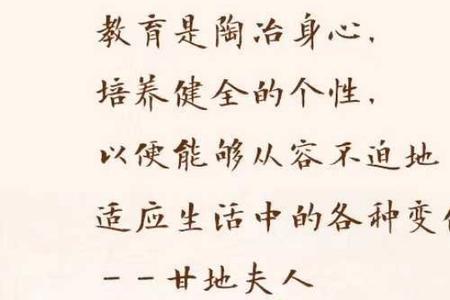 教育是陶冶身心,
培养健全的个性,
以便能够从容不迫地
适应生活中的各种变
--甘地夫人